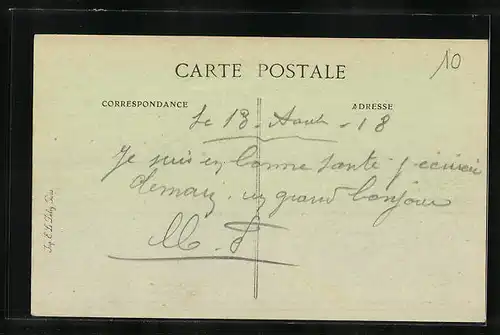 10
CARTE POSTALE
CORRESPONDANCE ADRESSE
Le 13 - Aout - 18
Je suis en bonne sante j'ecrirai
demain un grand bonjour
M. F